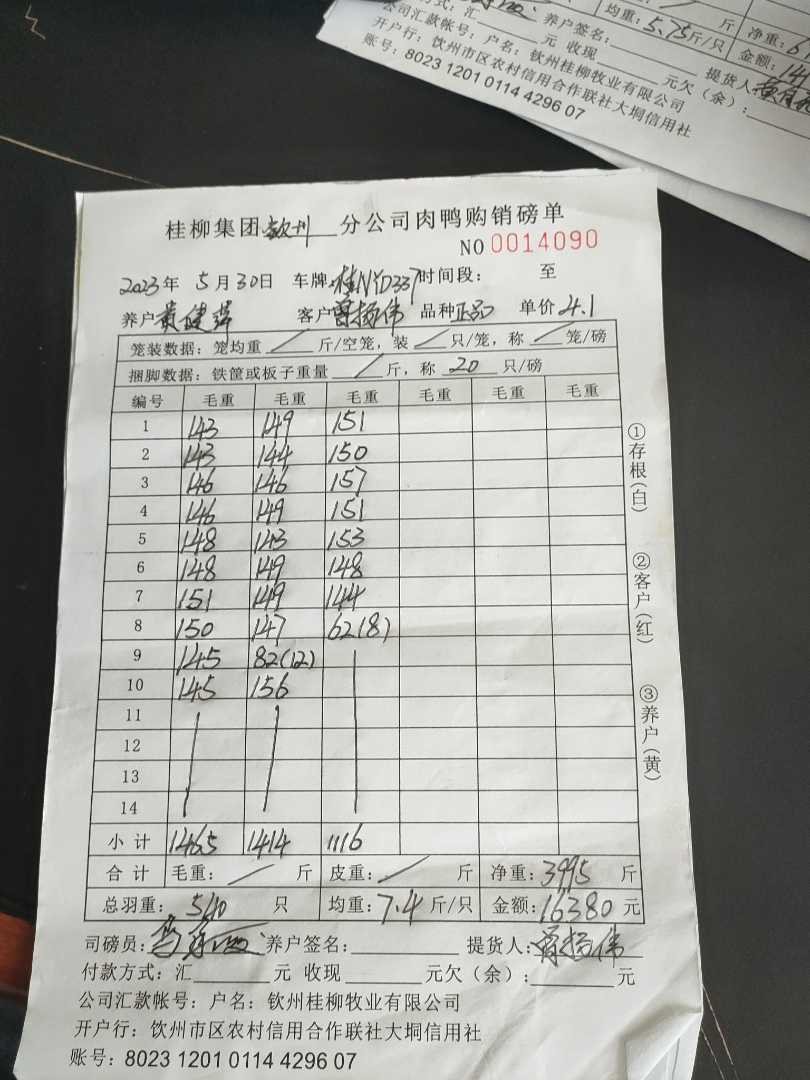 方式：汇 元 养户签名： 斤 均重：5.75斤/只 净重：
公司汇款帐号：户名：钦州桂柳牧业有限公司 收现 元欠（余）： 提货人 金额：
开户行：钦州市区农村信用合作联社大垌信用社
账号：8023 1201 0114 4296 07
桂柳集团钦州分公司肉鸭购销磅单
NO 0014090
2023年 5月30日 车牌：桂NYD337 时间段： 至
养户黄健萍 客户曾扬伟 品种正品 单价4.1
笼装数据：笼均重 / 斤/空笼，装 / 只/笼，称 / 笼/磅
捆脚数据：铁筐或板子重量 / 斤，称 20 只/磅
编号 毛重 毛重 毛重 毛重 毛重 毛重
1 143 149 151
2 143 144 150
3 146 146 157
4 146 149 151
5 148 143 153
6 148 149 148
7 151 149 144
8 150 147 62(8)
9 145 82(12)
10 145 156
11
12
13
14
小计 1465 1414 1116
合计 毛重： / 斤 皮重： / 斤 净重：3995 斤
总羽重：540 只 均重：7.4斤/只 金额：16380元
司磅员： 养户签名： 提货人：曾扬伟
付款方式：汇 元 收现 元欠（余）： 元
公司汇款帐号：户名：钦州桂柳牧业有限公司
开户行：钦州市区农村信用合作联社大垌信用社
账号：8023 1201 0114 4296 07
①存根（白）
②客户（红）
③养户（黄）